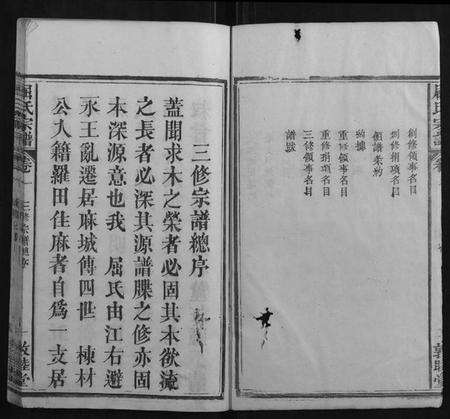 創修領事名目
創修捐項名目
領譜条約
始據
重修領事名目
重修捐項名目
三修領事名目
譜跋
敦睦堂
三修宗譜總序
蓋聞求木之榮者必固其本欲流
之長者必深其源譜牒之修亦固
木深源意也我 屈氏由江右避
永王亂遷居麻城傳四世 棟材
公入籍羅田住麻者自為一支居
屈氏宗譜
卷
三修宗譜總序
敦睦堂